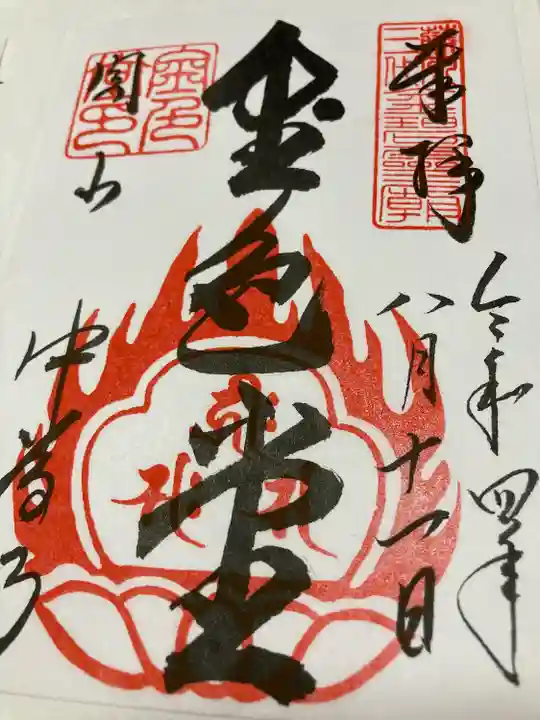 奉拝
令和四年
八月十一日
金色堂
関山
中尊寺